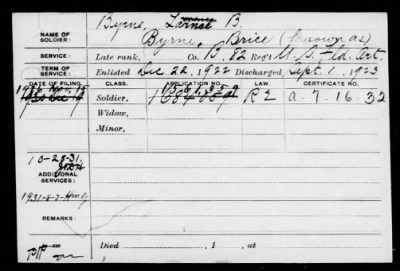 Byrne, B.
NAME OF SOLDIER: Byrne, Brice (known as)
SERVICE: Late rank, Co. B. 82 Reg't U.S. Fld. Art.
TERM OF SERVICE: Enlisted Dec 22, 1922 Discharged Sept. 1, 1923
DATE OF FILING. CLASS. APPLICATION NO. LAW. CERTIFICATE NO.
Soldier, A-7-16-32
Widow,
Minor,
10-28-31.
ADDITIONAL SERVICES:
1931-8-3-
REMARKS:
Died , 1 , at